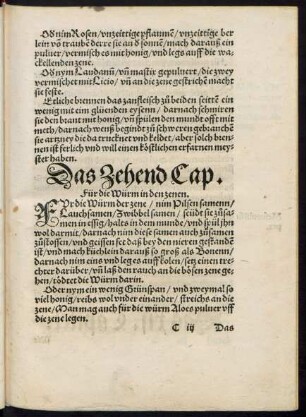 Od nim Rosen / vnzeittige pflaumẽ / vnzeittige ber
lein võ traubẽ derre sie an ð sonnẽ / mach darauß ein
puluer / vermisch es mit honig / vnd legs auff die wa-
ckellenden zene.
Od nym Laudanũ / vñ mastix gepuluert / die zwey
vermischet mit Licio / vñ an die zene gestrichẽ macht
sie stett.
Etliche brennen das zanfleisch zů beiden seittẽ ein
wenig mit eim glüenden eysenn / darnach schmiren
sie den brant mit honig / vñ spülen den mundt offt mit
meth / darnach wenß begindt zů schweren gebrauchẽ
sie artzney die da trücknet vnd keldet / aber solch bren-
nen ist ferlich vnd will einen köstlichen erfarnen mey-
ster haben.
Das Zehend Cap.
Für die Würm in den zenen.
Für die Würm der zene / nim Pilsen samenn /
Lauchsamen / Zwibbel samen / seüdt sie zůsa-
men in essig / hales in dem munde / vnd spül jhn
wol darmit / darnach nim diese samen auch zůsamen
zůstossen / vnd geissen see daß bey den nieren gestandẽ
ist / vnd mach küchlein darauß so groß als Bonenn /
darnach nim eins vnd leg es auff kolen / setz einen tre-
chter darüber / vñ laß den rauch an die bösen zene ge-
hen / tödtet die Würm darin.
Oder nym ein wenig Grünspan / vnd zweymal so
viel honig / reibs wol vnder einander / streichs an die
zene / Man mag auch für die würm Aloes puluer vff
die zene legen.
C iij Das